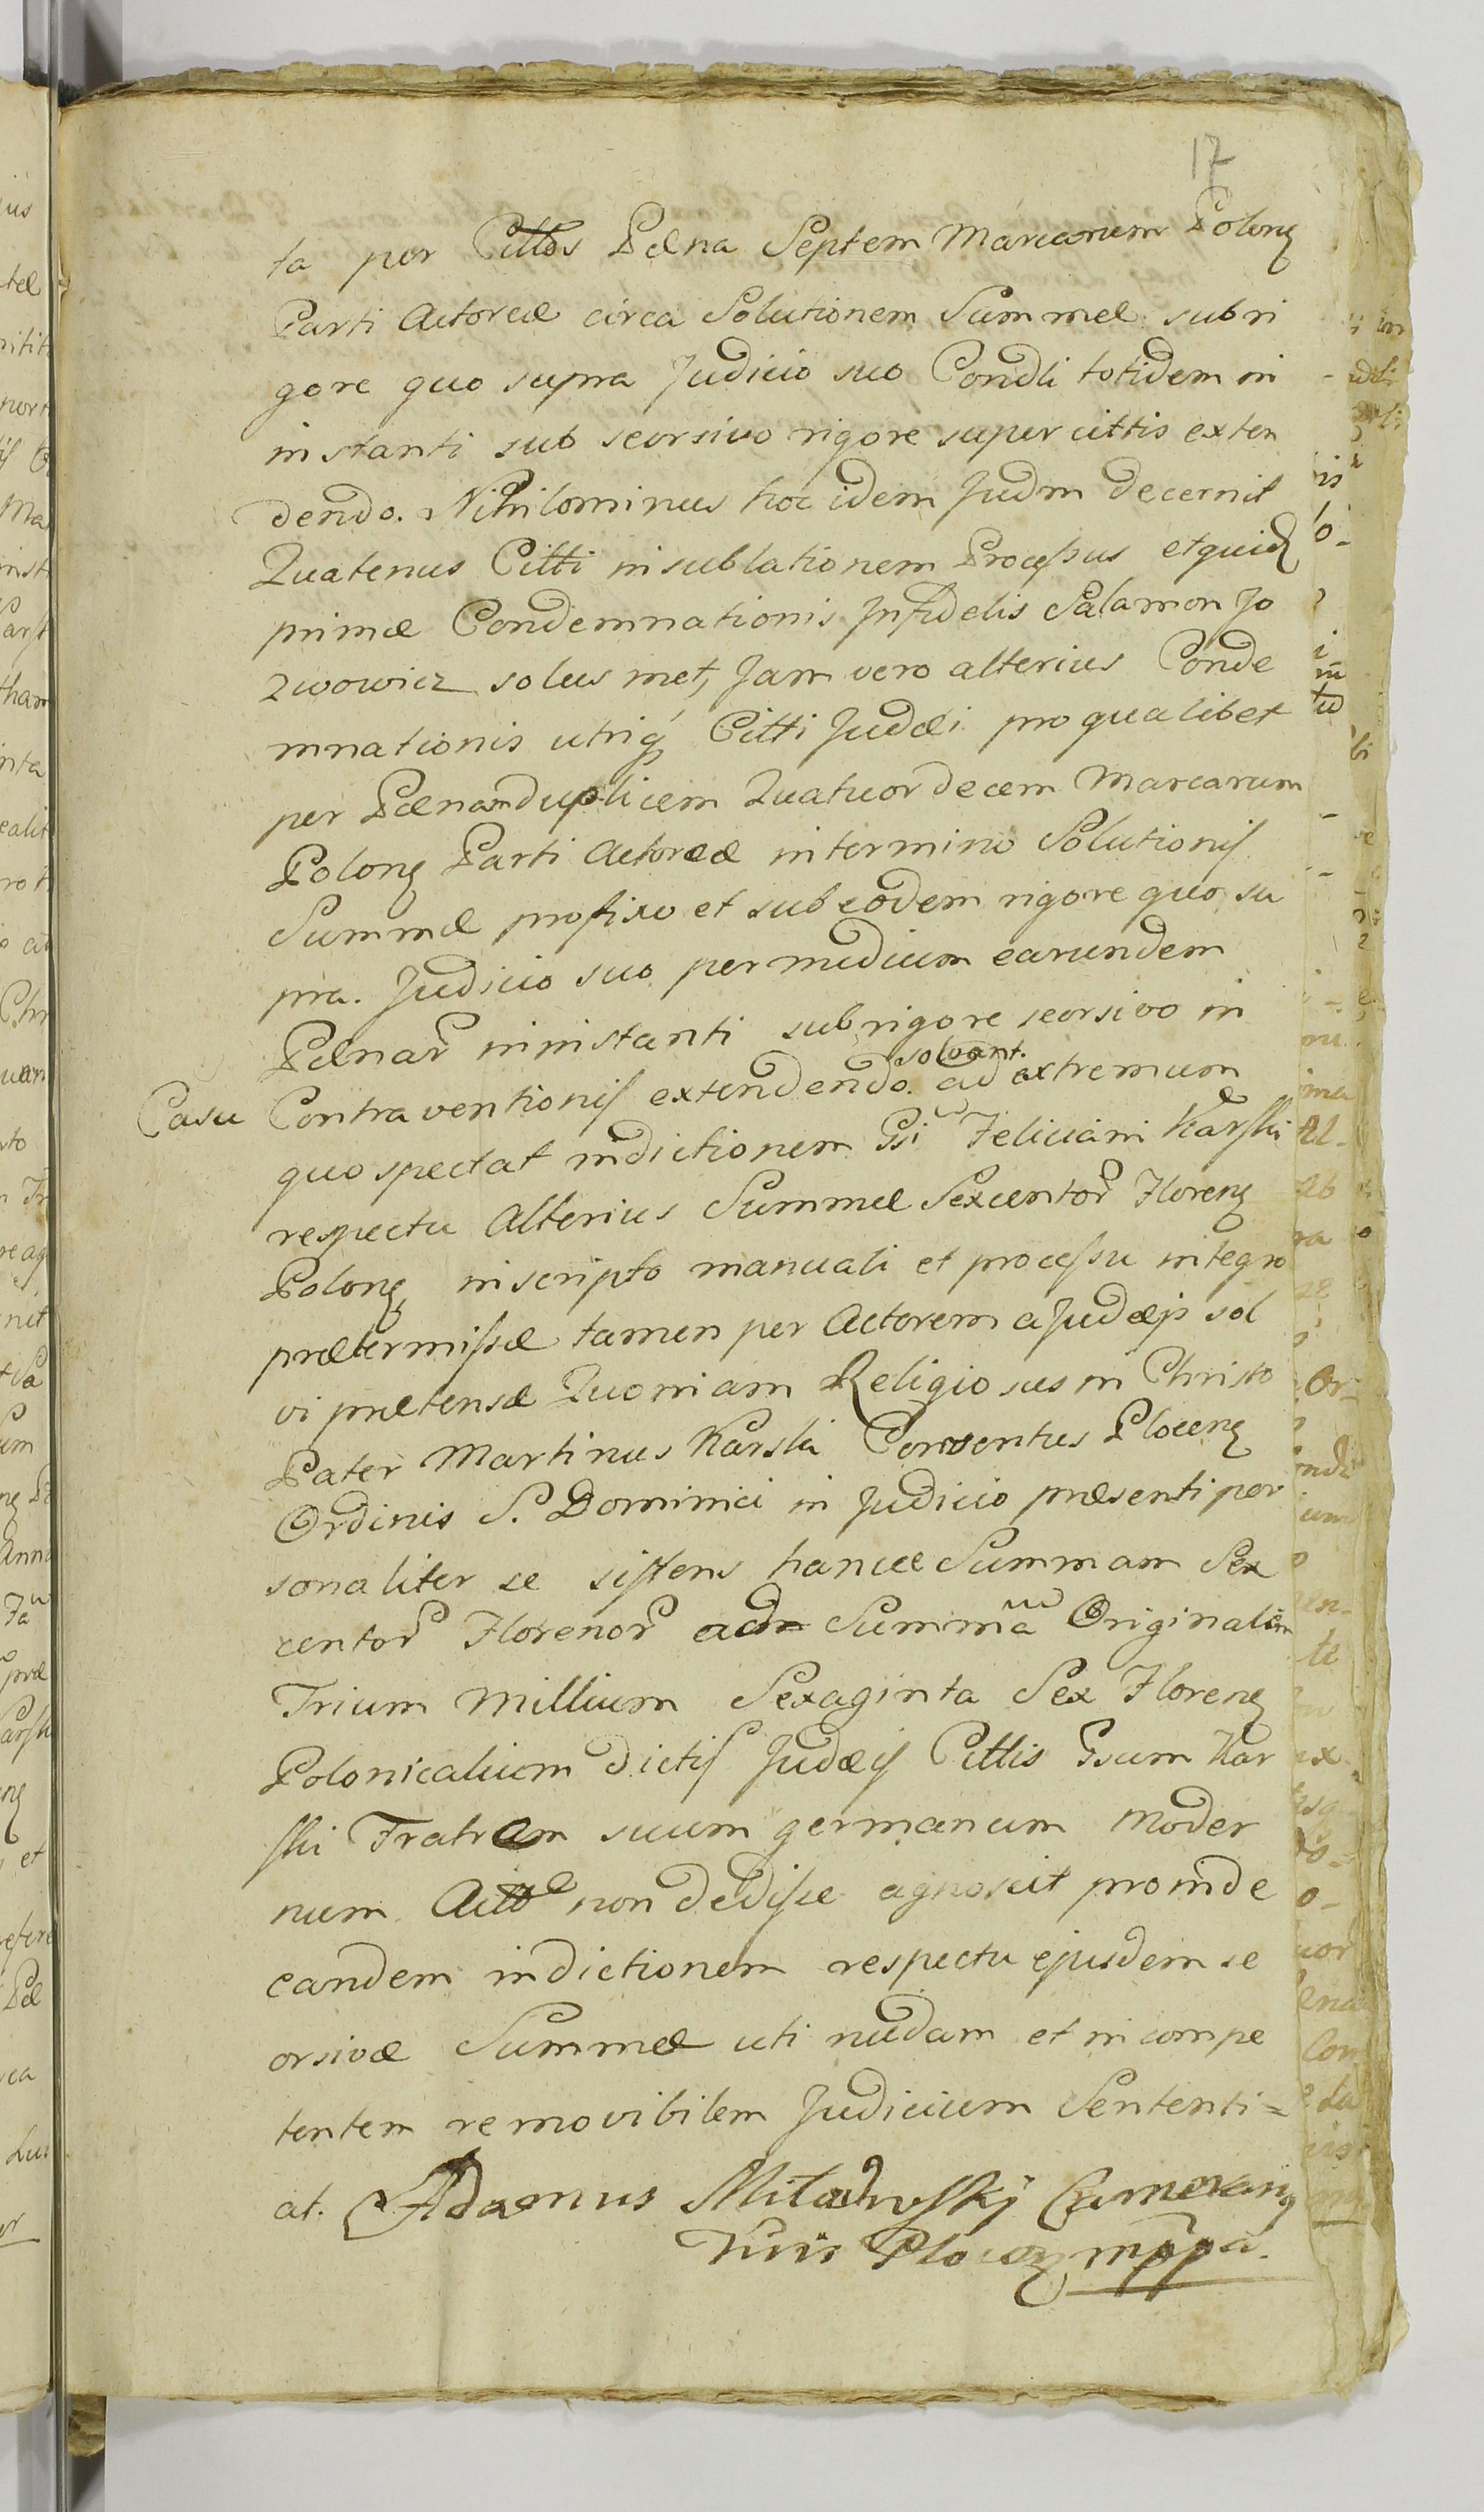 17
ta per Cittos Pæna Septem Marcarum Polong
Parti Actoreæ circa Solutionem Summæ subri
gore quo supra Judicio suo Condli totidem in
instanti sub seorsivo rigore super cittis exten
dendo. Nihilominus hoc idem Judm decernit
Quatenus Citti in sublationem Processus et quid
primæ Condemnationis Infidelis Salamon Jo
zwowicz solus met, Jam vero alterius Conde
mnationis utriq Citti Judæi pro qualibet
per Pænam duplicem Quatuordecem Marcarum
Polong Parti Actoreæ in termino Solutionis
Summæ profixo et sub eodem rigore quo su
pra. Judicio suo per medium earundem
Pænar in instanti sub rigore seorsivo in
Casu Contraventionis extendendo solvant. ad extremum
quo spectat indictionem Gsi Feliciani Karski
respectu Alterius Summæ Sexcentor Floreng
Polong in scripto manuali et processu integro
prætermissæ tamen per Actorem a Judæis sol
vi prætensæ Quoniam Religiosus in Christo
Pater Martinus Karski Conventus Ploceng
Ordinis S. Dominici in Judicio præsenti per
sonaliter se sistens hancce Summam Sex
centor Florenor ad Summa Originalem
Trium Millium Sexaginta Sex Floreng
Polonicalium dictis Judæis Cittis Gsum Kar
ski Fratrem suum germanum Moder
num Act non dedisse agnoscit proinde
eandem indictionem respectu ejusdem se
orsivæ Summæ uti nudam et incompe
tentem removibilem Judicium Sententi=
at. Adamus Camerarg
Plocen mppa.